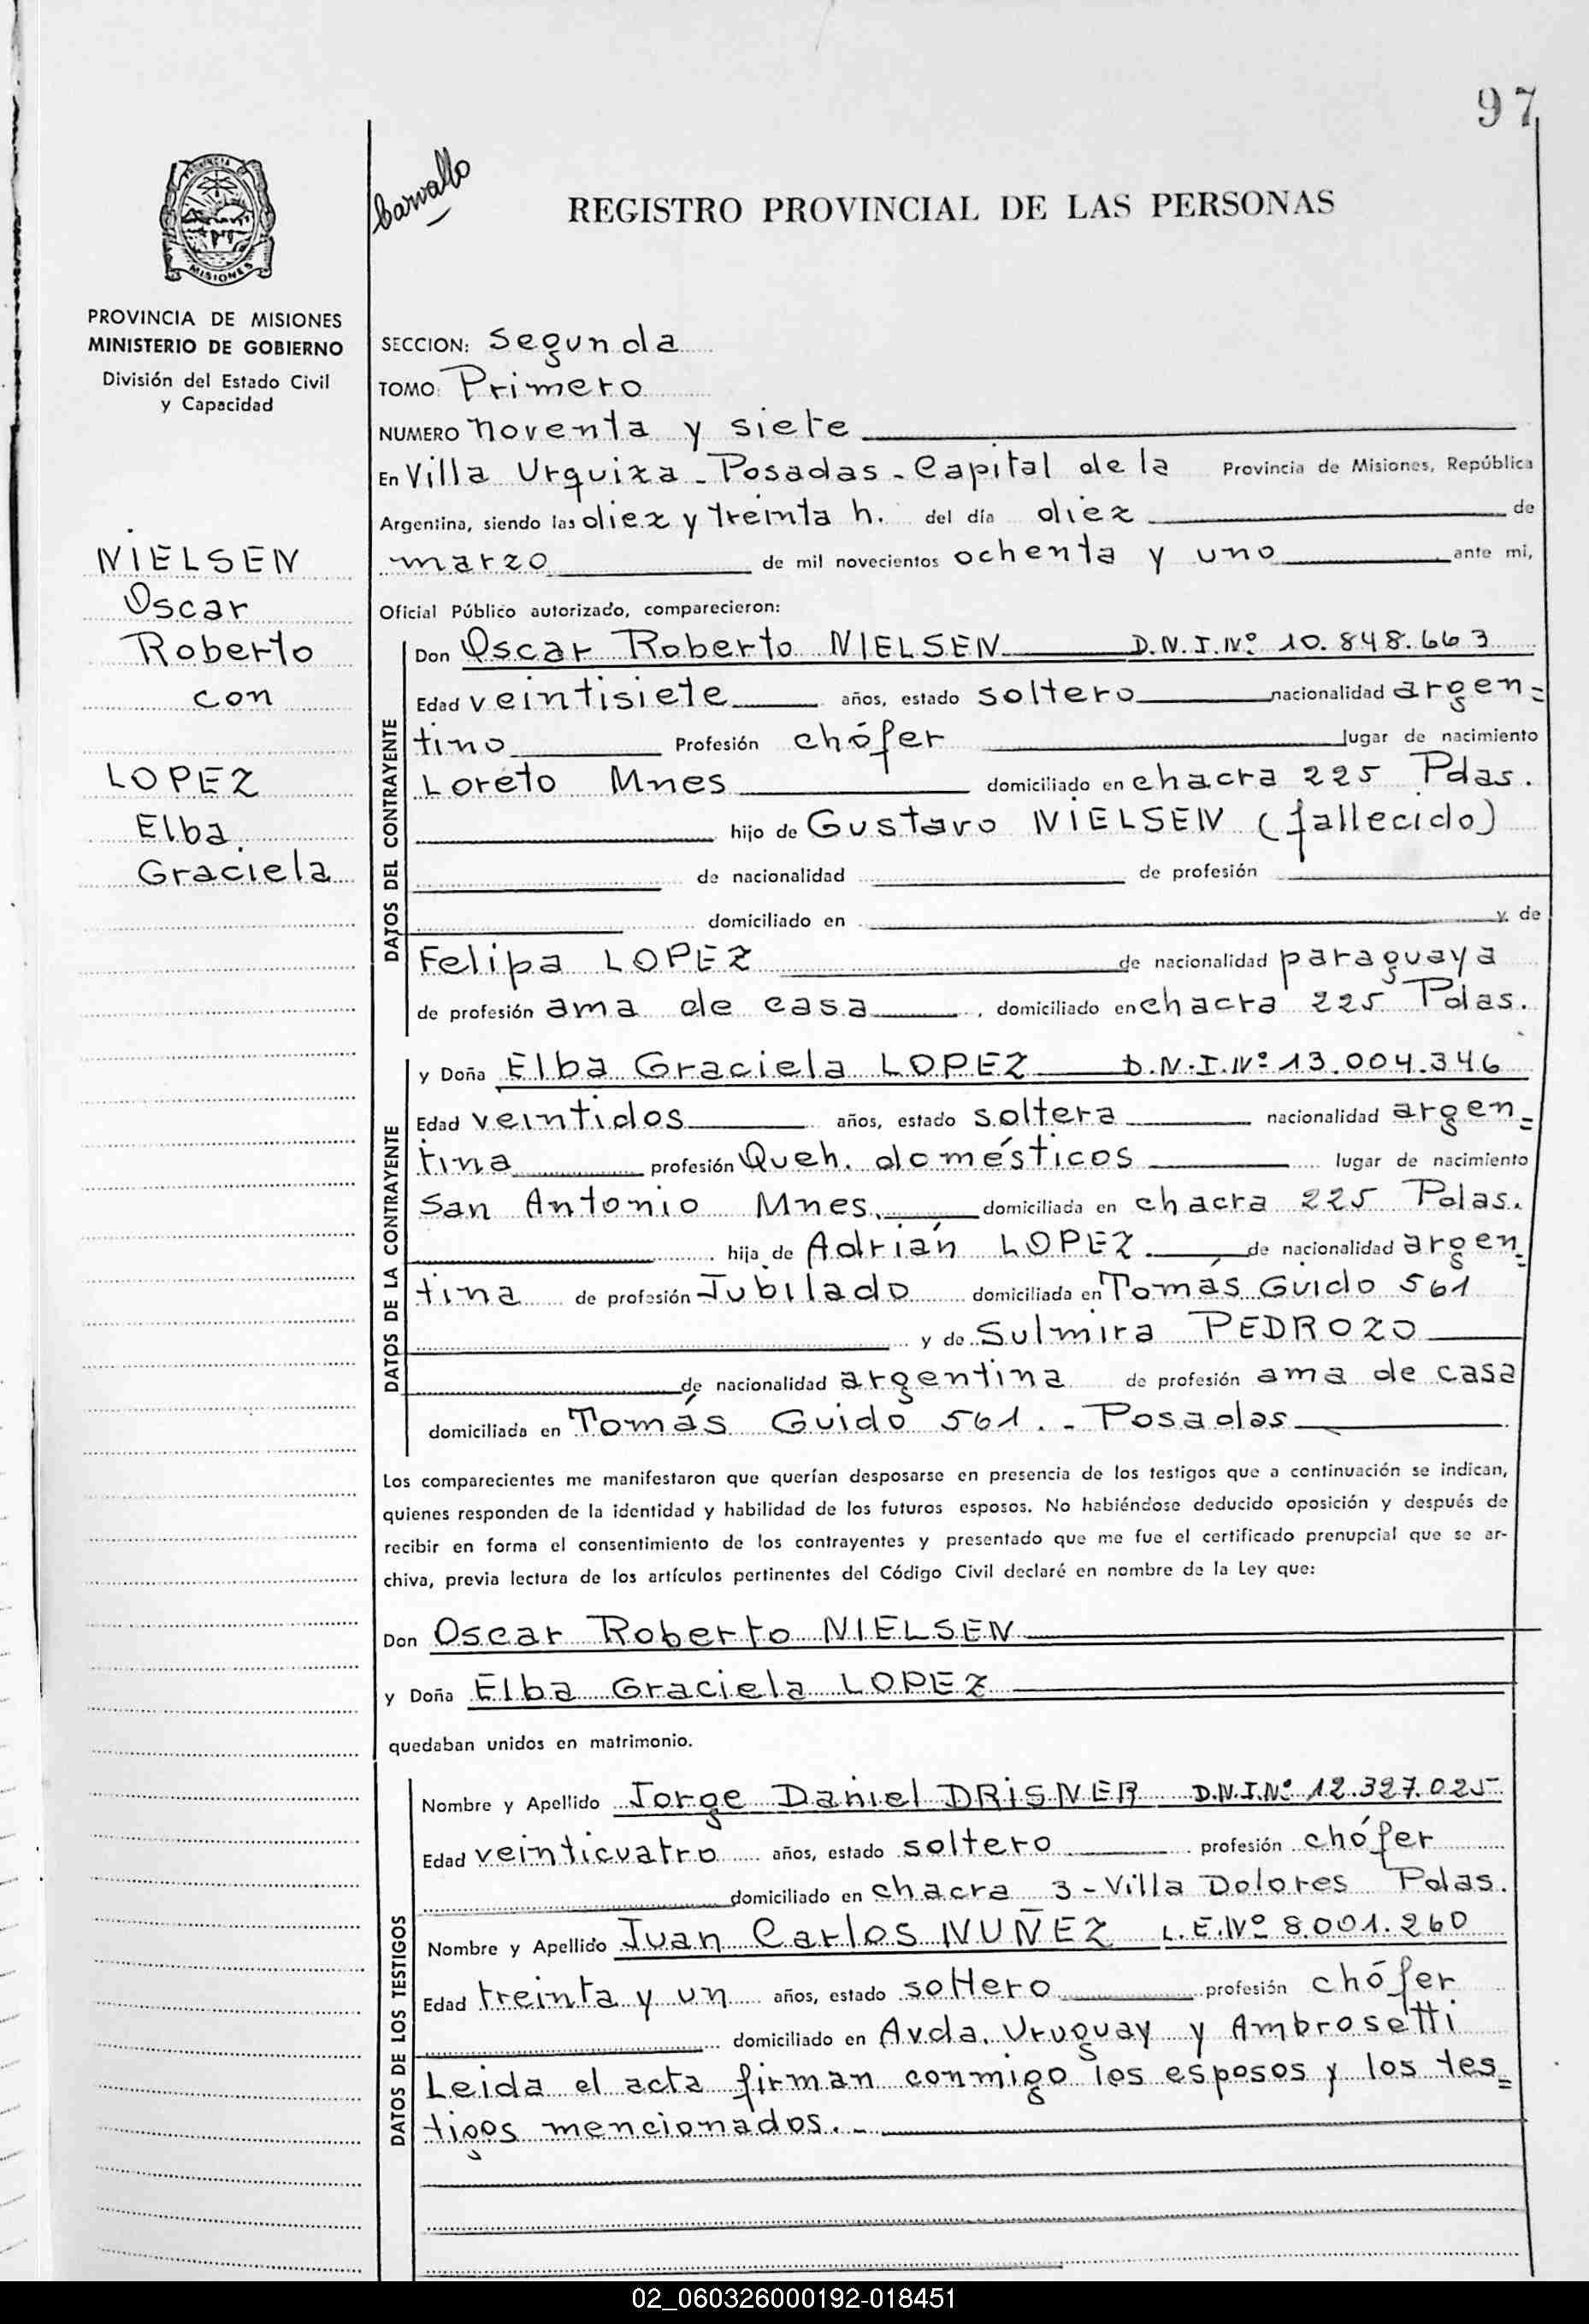 97
Carvallo
REGISTRO PROVINCIAL DE LAS PERSONAS
PROVINCIA
MISIONES
PROVINCIA DE MISIONES
MINISTERIO DE GOBIERNO
División del Estado Civil
y Capacidad
NIELSEN
Oscar
Roberto
con
LOPEZ
Elba
Graciela
SECCION: Segunda
TOMO: Primero
NUMERO noventa y siete
En Villa Urquiza - Posadas - Capital de la Provincia de Misiones, República
Argentina, siendo las diez y treinta h. del día diez de
marzo de mil novecientos ochenta y uno ante mi,
Oficial Público autorizado, comparecieron:
DATOS DEL CONTRAYENTE
Don Oscar Roberto NIELSEN D.N.I.Nº 10.848.663
Edad veintisiete años, estado soltero nacionalidad argen=
tino Profesión chófer lugar de nacimiento
Loreto Mnes domiciliado en chacra 225 Pdas.
hijo de Gustavo NIELSEN (fallecido)
de nacionalidad de profesión
domiciliado en y de
Felipa LOPEZ de nacionalidad paraguaya
de profesión ama de casa, domiciliado en chacra 225 Pdas.
DATOS DE LA CONTRAYENTE
y Doña Elba Graciela LOPEZ D.N.I.Nº 13.004.346
Edad veintidos años, estado soltera nacionalidad argen=
tina profesión Queh. domésticos lugar de nacimiento
San Antonio Mnes. domiciliada en chacra 225 Pdas.
hija de Adrián LOPEZ de nacionalidad argen=
tina de profesión Jubilado domiciliada en Tomás Guido 561
y de Sulmira PEDROZO
de nacionalidad argentina de profesión ama de casa
domiciliada en Tomás Guido 561.- Posadas
Los comparecientes me manifestaron que querían desposarse en presencia de los testigos que a continuación se indican,
quienes responden de la identidad y habilidad de los futuros esposos. No habiéndose deducido oposición y después de
recibir en forma el consentimiento de los contrayentes y presentado que me fue el certificado prenupcial que se ar-
chiva, previa lectura de los artículos pertinentes del Código Civil declaré en nombre de la Ley que:
Don Oscar Roberto NIELSEN
y Doña Elba Graciela LOPEZ
quedaban unidos en matrimonio.
DATOS DE LOS TESTIGOS
Nombre y Apellido Jorge Daniel DRISNER D.N.I.Nº 12.327.025
Edad veinticuatro años, estado soltero profesión chófer
domiciliado en chacra 3 - Villa Dolores Pdas.
Nombre y Apellido Juan Carlos NUÑEZ L.E.Nº 8.001.260
Edad treinta y un años, estado soltero profesión chófer
domiciliado en Avda. Uruguay y Ambrosetti
Leida el acta firman conmigo los esposos y los tes=
tigos mencionados.-
02_060326000192-018451